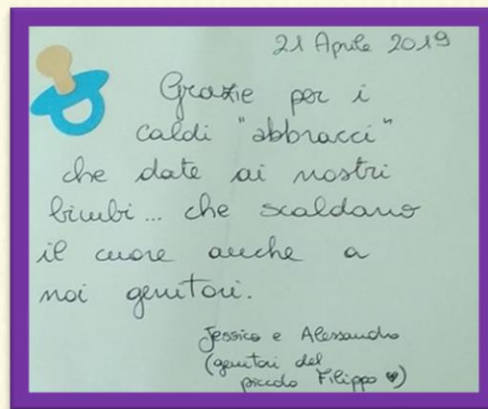 21 Aprile 2019
Grazie per i
caldi "abbracci"
che date ai nostri
bimbi... che scaldano
il cuore anche a
noi genitori.
Jessica e Alessandro
(genitori del
piccolo Filippo ♥)